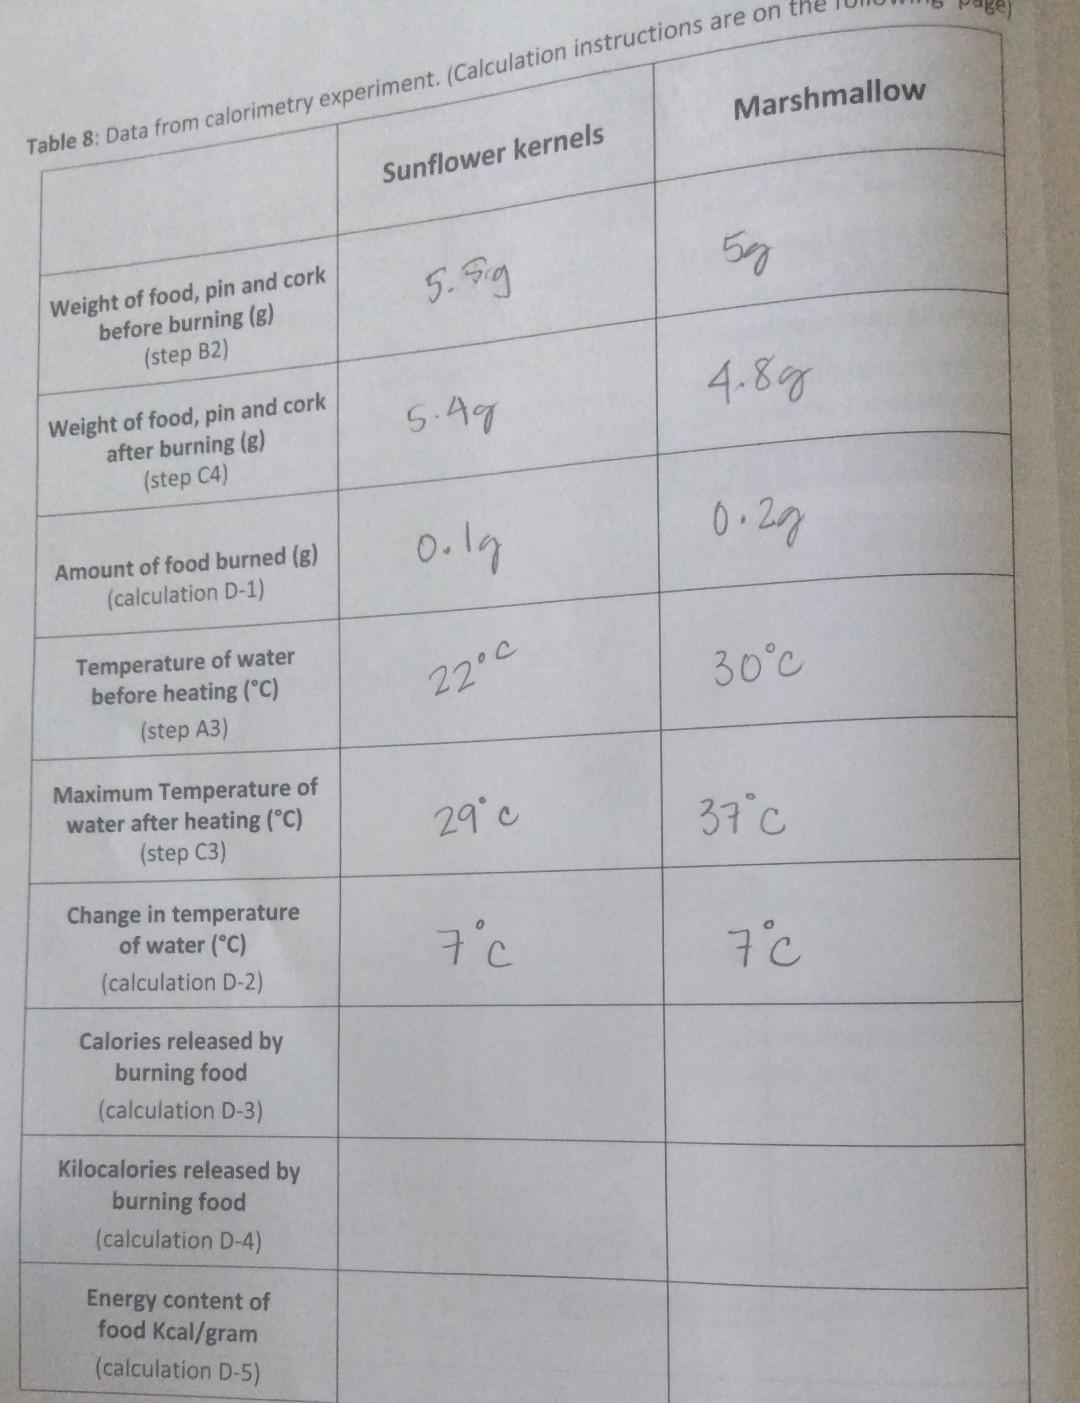 Table 8: Data from calorimetry experiment. (Calculation instructions are on the following page)
Sunflower kernels
Marshmallow
Weight of food, pin and cork
before burning (g)
(step B2)
5.5g
5g
Weight of food, pin and cork
after burning (g)
(step C4)
5.4g
4.8g
Amount of food burned (g)
(calculation D-1)
0.1g
0.2g
Temperature of water
before heating (°C)
(step A3)
22°C
30°C
Maximum Temperature of
water after heating (°C)
(step C3)
29°C
37°C
Change in temperature
of water (°C)
(calculation D-2)
7°C
7°C
Calories released by
burning food
(calculation D-3)
Kilocalories released by
burning food
(calculation D-4)
Energy content of
food Kcal/gram
(calculation D-5)